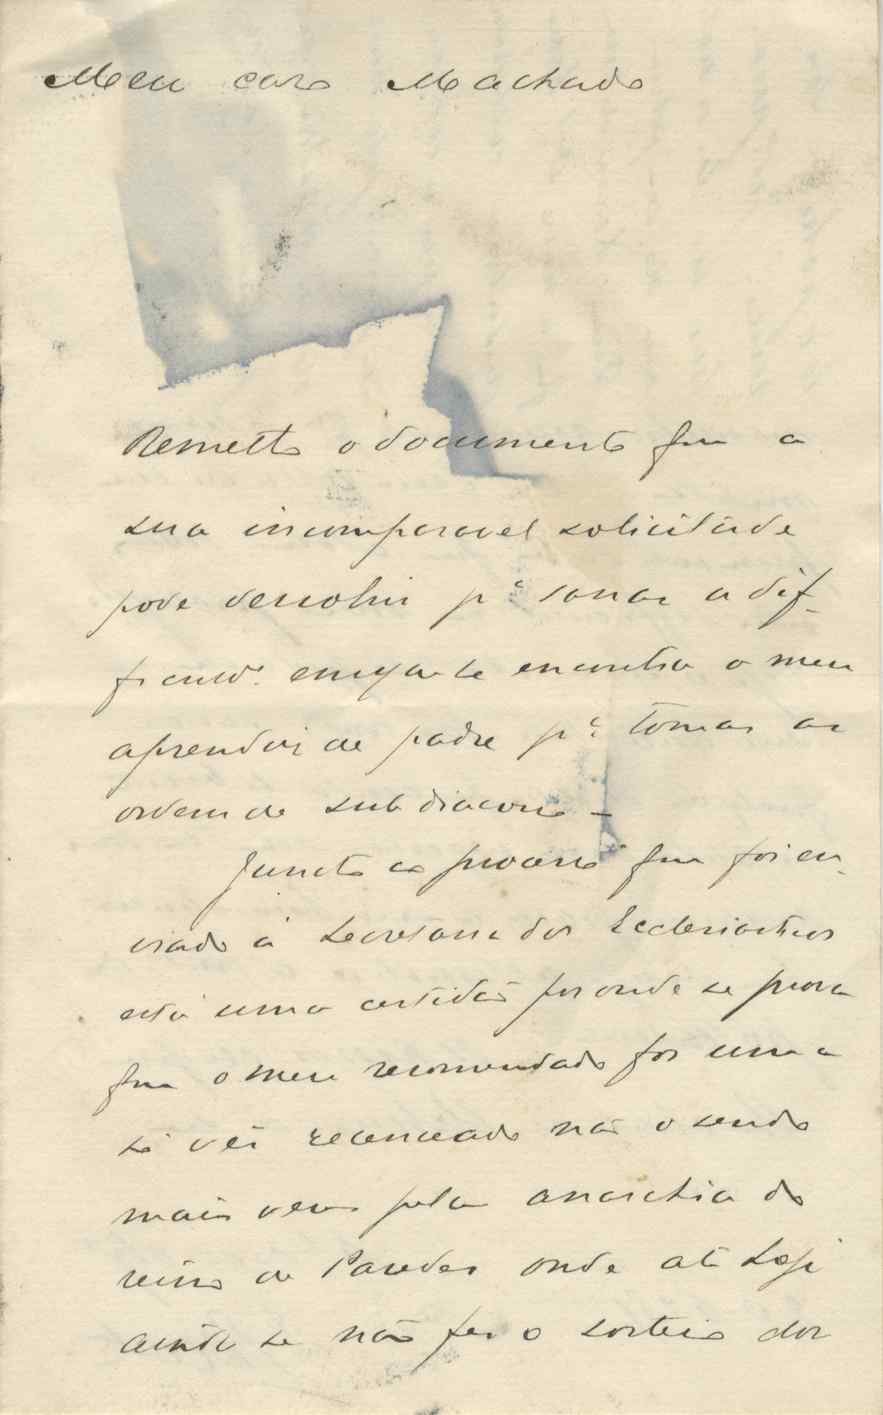 Meu caro Machado
Remetto o documento que a
sua incomparavel solicitude
pode descobrir pª sanar a dif-
ficuldᵉ. em que se encontra o meu
aprendiz de padre pª tomar as
ordem de sub diacono -
Juncto ao processo que foi en-
viado á Secretaria dos Ecclesiasticos
está uma certidão por onde se prova
que o meu recomendado foi uma
só vêz recenceado não o sendo
mais vezes pela anarchia do
reino de Paredes onde até hoje
ainda se não fez o sorteio dos